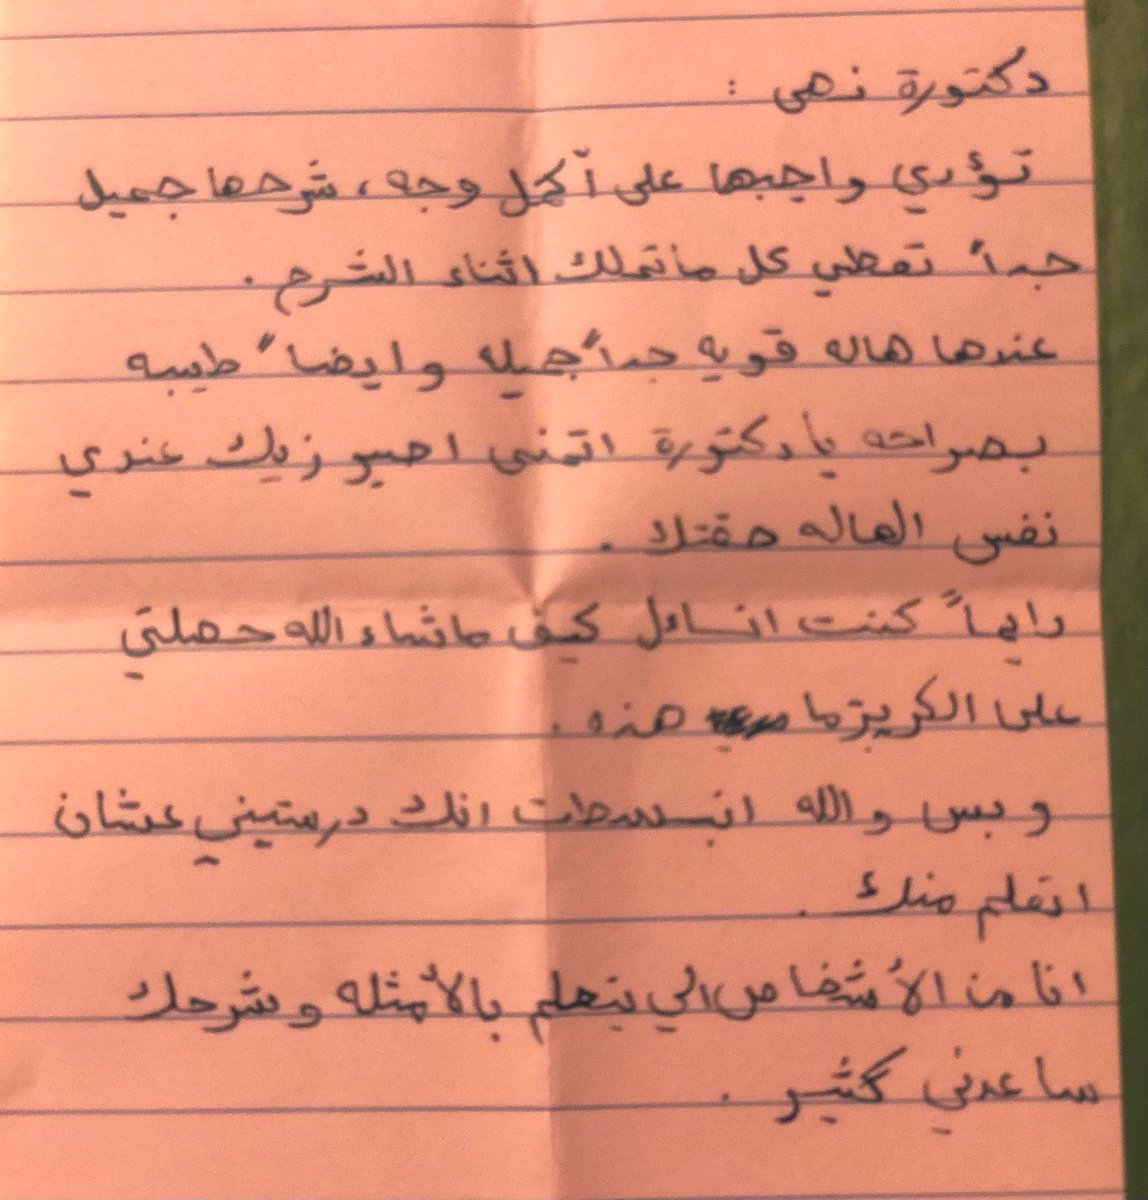 دكتورة نهى :
تؤدي واجبها على أكمل وجه ، شرحها جميل
جداً تعطي كل ماتملك اثناء الشرح .
عندها هاله قويه جداً جميله وايضاً طيبه
بصراحه يادكتورة اتمنى اصير زيك عندي
نفس الهاله حقتك .
دايماً كنت اتساءل كيف ماشاء الله حصلتي
على الكريزما هذه .
وبس والله انبسطت انك درستيني عشان
اتعلم منك .
انا من الأشخاص الي يتعلم بالأمثله وشرحك
ساعدني كثير .